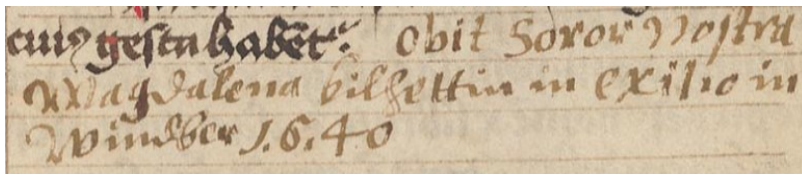 cuiꝰ gesta habetᵉ. Obit Soror Nostra
Magdalena bilhettin in exilio in
Windber 1.6.40